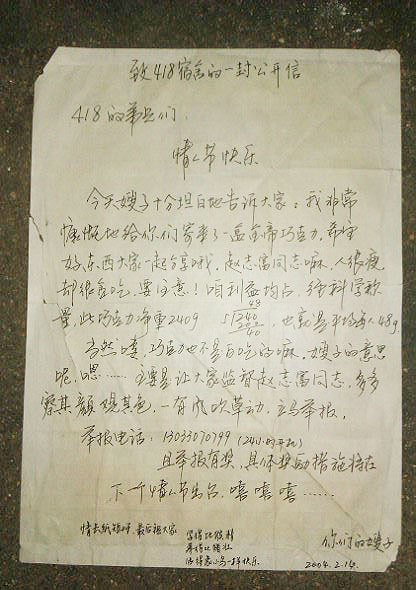 致418宿舍的一封公开信
418的弟兄们:
情人节快乐
今天嫂子十分坦白地告诉大家:我非常
慷慨地给你们寄来了一盒金帝巧克力,希望
好东西大家一起分享哦,赵志富同志嘛,人很瘦
却很贪吃,要注意!咱利益均占,经科学称
量,此巧克力净重240g
48
5 240
20
40
,也就是平均每人48g
当然喽,巧克力也不是白吃的嘛,嫂子的意思
呢,嗯……主要是让大家监督赵志富同志,多多
察其颜观其色,一有风吹草动,立马举报,
举报电话:13033070799(24小时开机)
且举报有奖,具体奖励措施将在
下一个情人节出台,嘻嘻嘻……
最后祝大家
你们的嫂子
2004.2.14